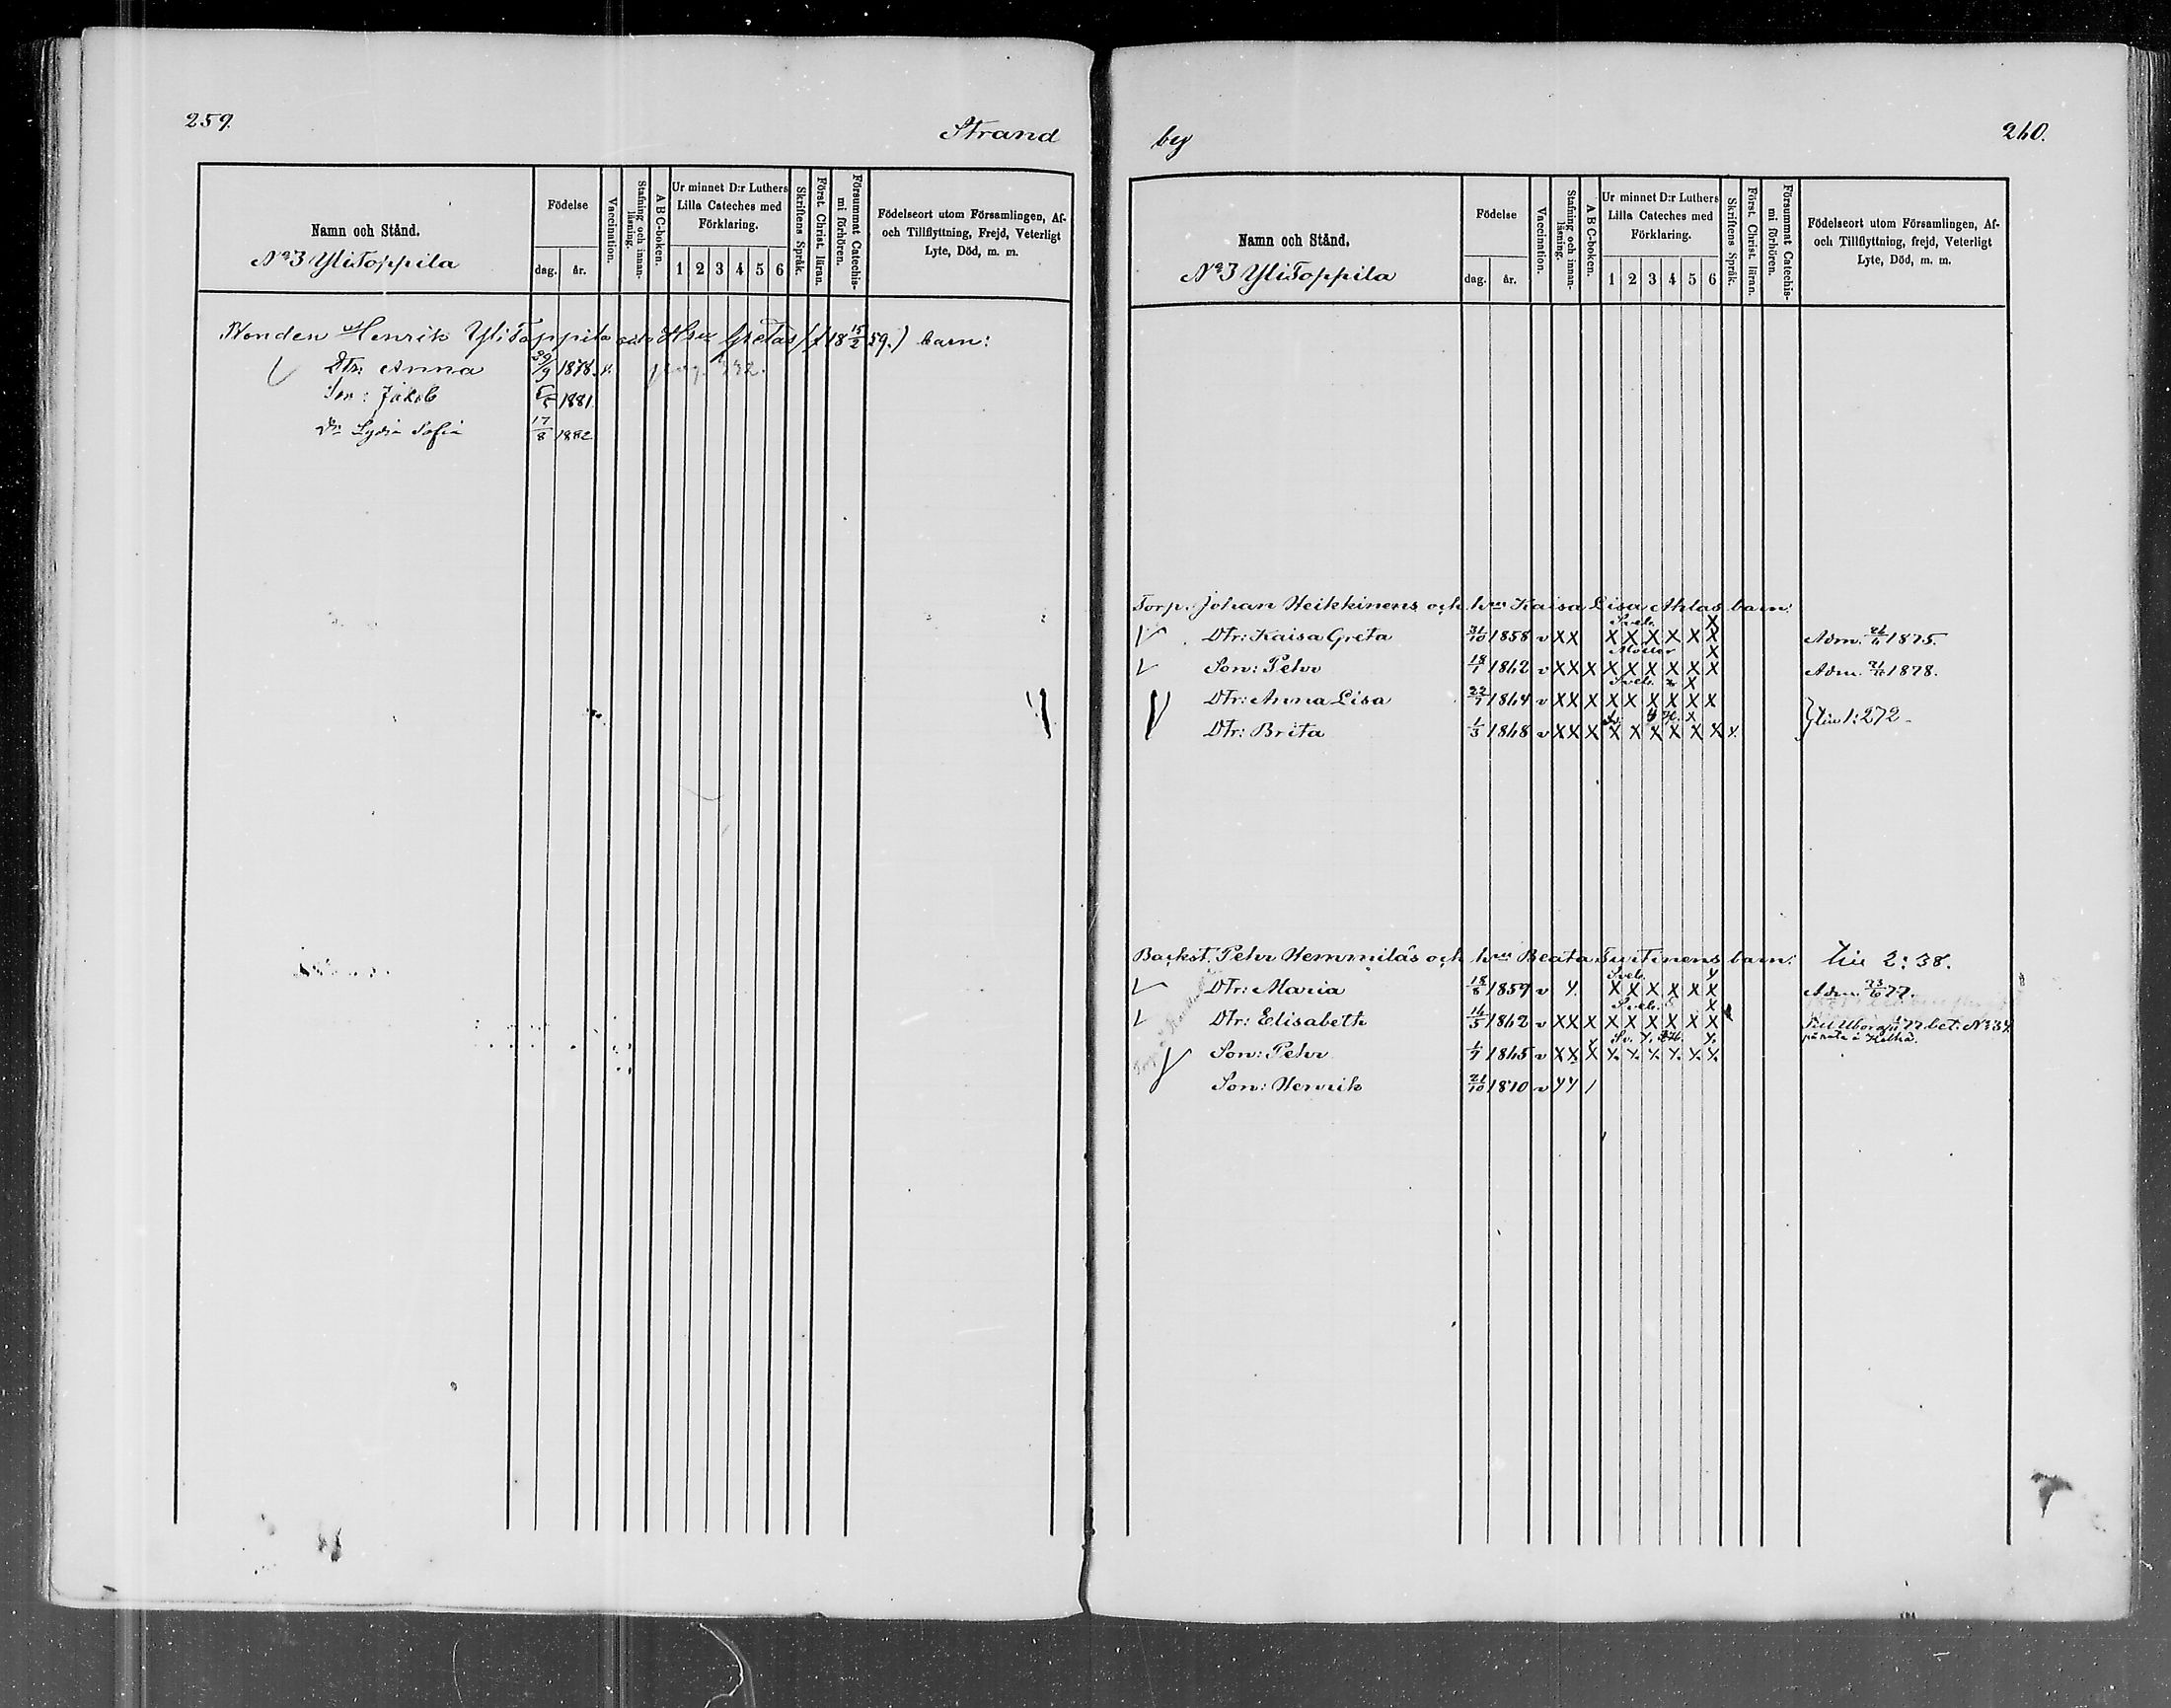 259.
Strand
Namn och Stånd.
No 3 YliToppila
Födelse
dag.
år.
Vaccination.
Stafning och innan-läsning.
A B C-boken.
Ur minnet D:r Luthers
Lilla Cateches med
Förklaring.
1 2 3 4 5 6
Skriftens Språk.
Först. Christ. läran.
Försummat Catechis-mi förhören.
Födelseort utom Församlingen, Af-
och Tillflyttning, Frejd, Veterligt
Lyte, Död, m. m.
Bonden Henrik YliToppila och Hru Gretas (f. 18 15/2 59.) barn:
Dtr: Anna 29/9 1878. v. pag. 332.
Son: Jakob 1881.
Dr Lydia Sofia 17/8 1882
by
260.
Namn och Stånd.
No 3 YliToppila
Födelse
dag.
år.
Vaccination.
Stafning och innan-läsning.
A B C-boken.
Ur minnet D:r Luthers
Lilla Cateches med
Förklaring.
1 2 3 4 5 6
Skriftens Språk.
Först. Christ. läran.
Försummat Catechis-mi förhören.
Födelseort utom Församlingen, Af-
och Tillflyttning, frejd, Veterligt
Lyte, Död, m. m.
Torp. Johan Heikkinens och hus Kaisa Lisa Ahlas barn:
Sveb. X
Dtr: Kaisa Greta 31/10 1858 v X X X X X X X X Adm. 1875.
Möller X
Son: Petur 18/1 1862 v X X X X X X X X X Adm. 1878.
Sveb. X
Dtr: Anna Lisa 22/7 1864 v X X X X X X X X X
liu 1:272
Dtr: Brita 1/3 1868 v X X X X X X X X X
Backst. Petur Hemmiläs och hus Beata Turtinens barn: liu 2:38.
Sveb.
Dtr: Maria 18/8 1859 v X X X X X X Adm. 23/6 77.
Sveb. X
Dtr: Elisabeth 16/5 1862 v X X X X X X X X X Till Uleåborg 77. bet. No 34.
Son: Petur 1/7 1865 v X X X
Son: Henrik 21/10 1870 v